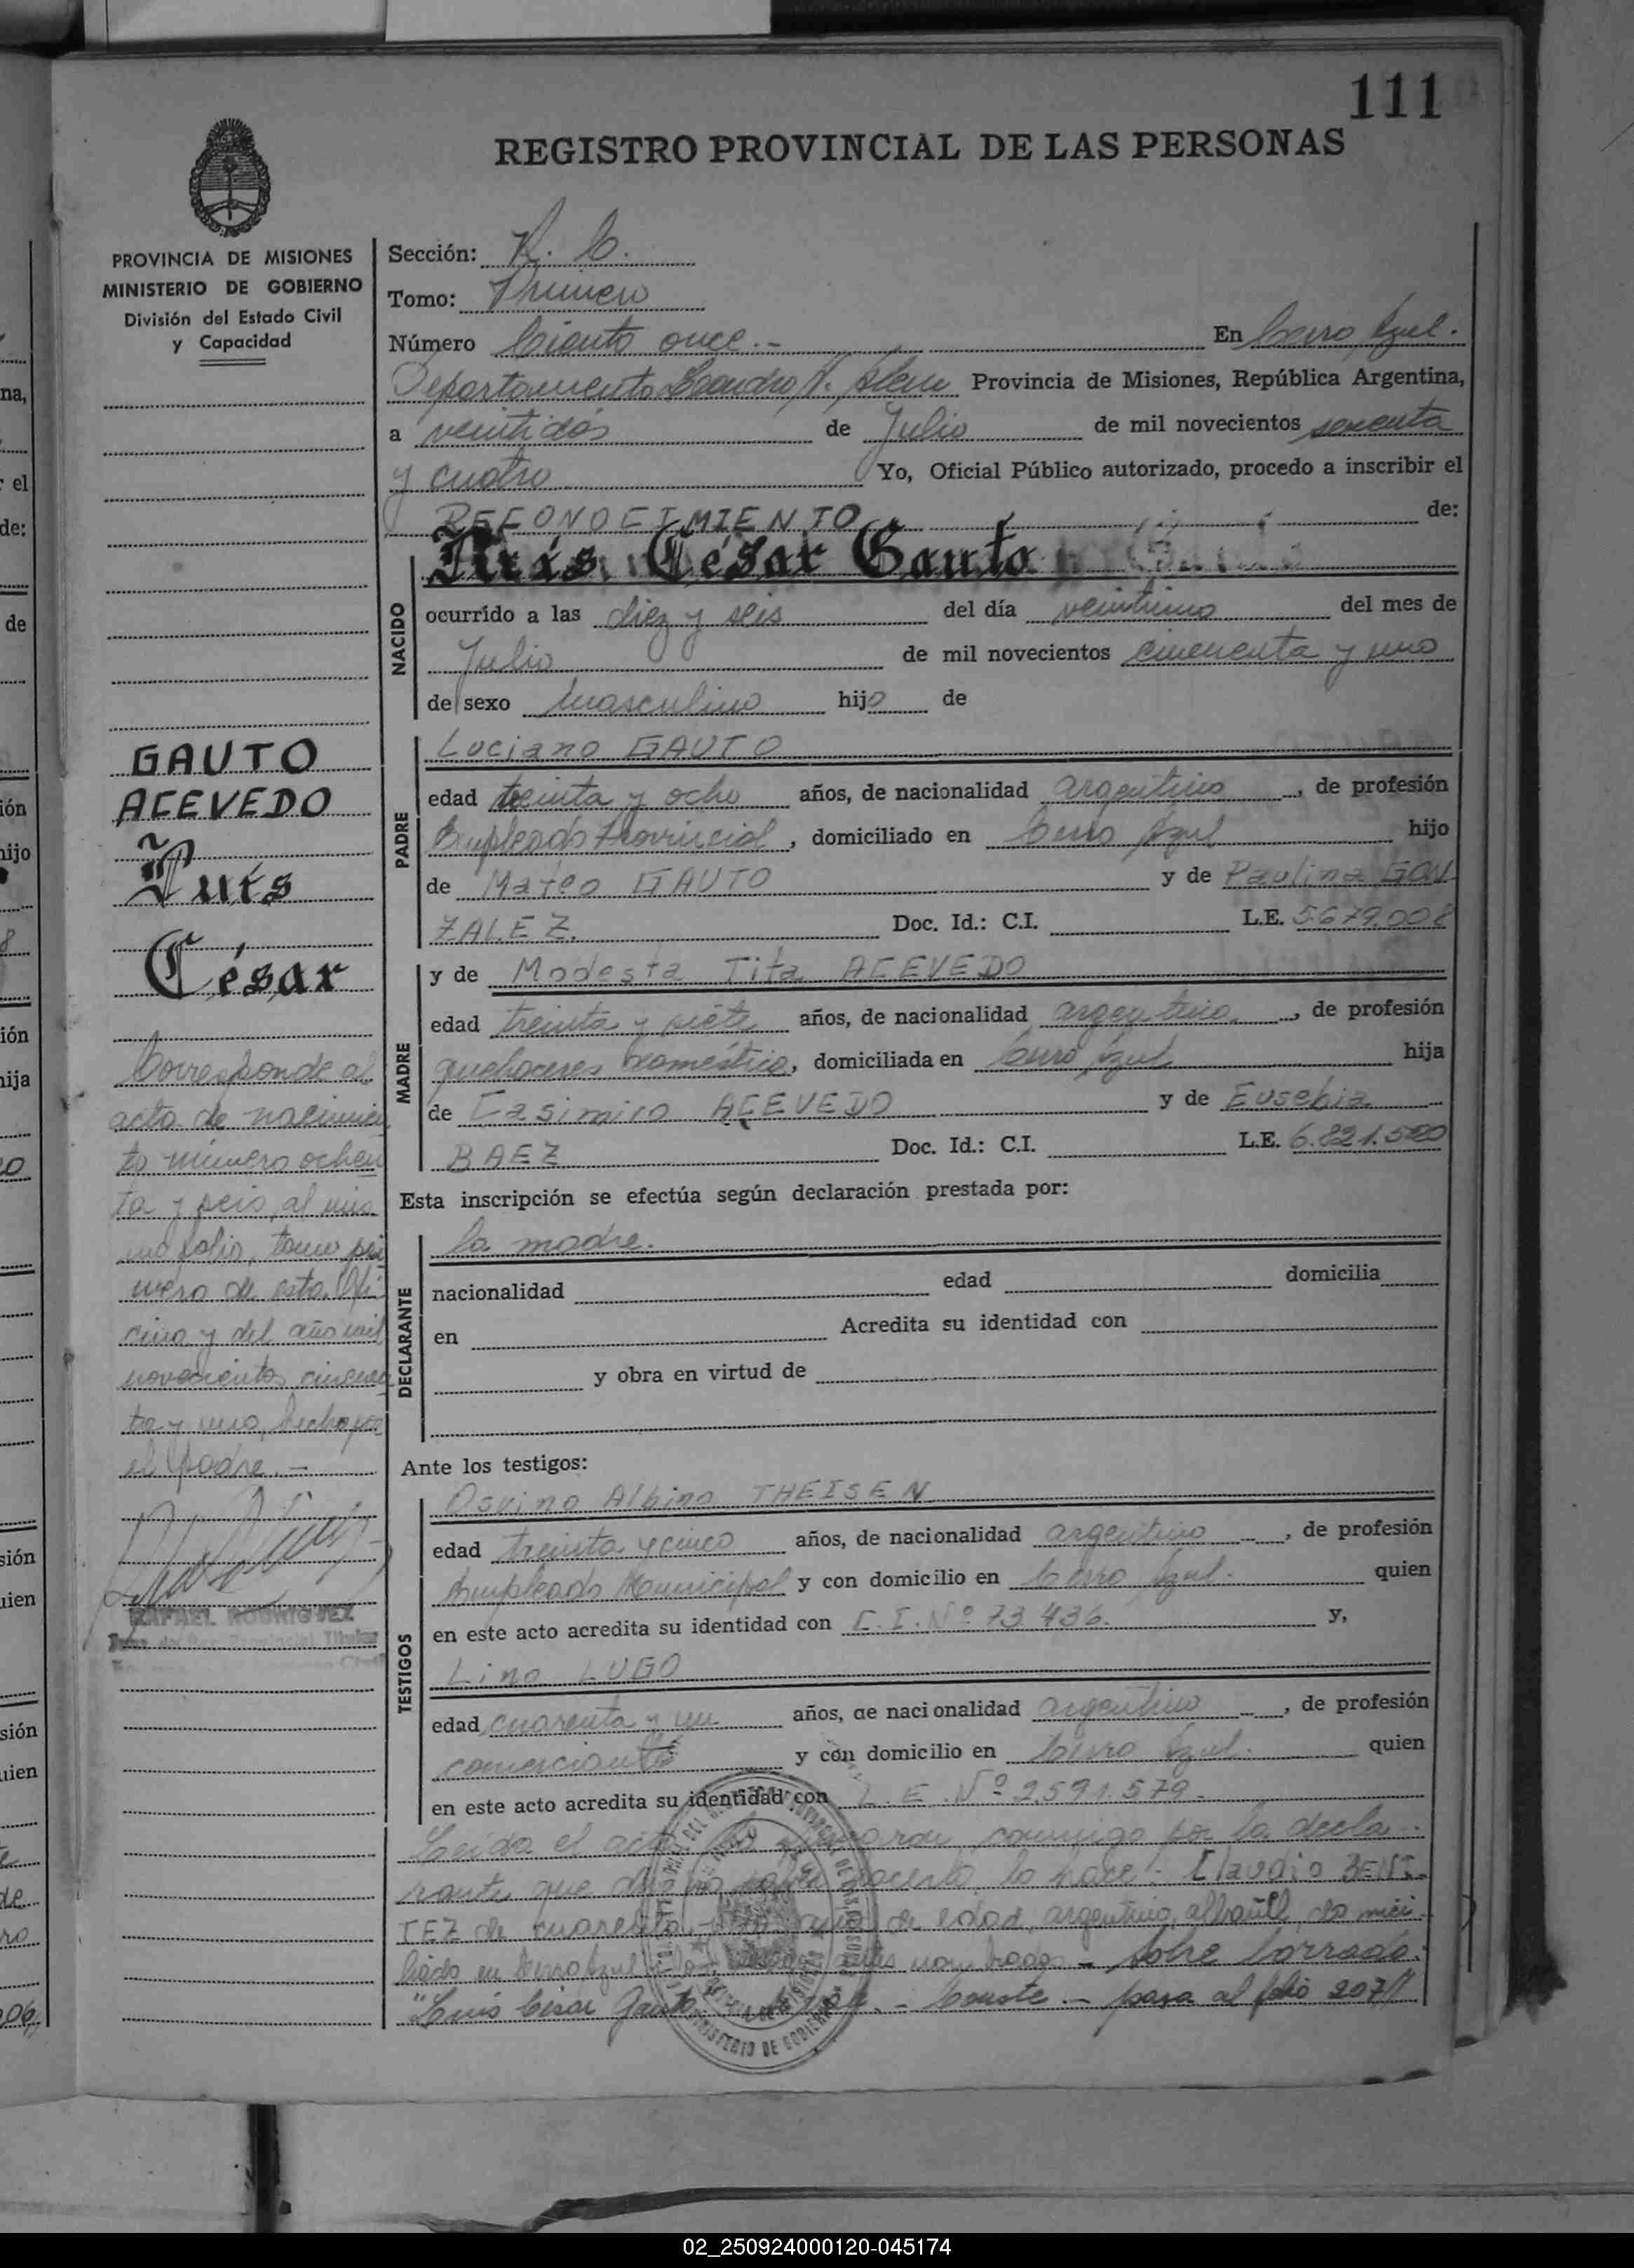 111
REGISTRO PROVINCIAL DE LAS PERSONAS
PROVINCIA DE MISIONES
MINISTERIO DE GOBIERNO
División del Estado Civil
y Capacidad
Sección: R. C.
Tomo: Primero
Número Ciento once.- En Cerro Azul.
Departamento Leandro N. Alem Provincia de Misiones, República Argentina,
a veintidós de Julio de mil novecientos sesenta
y cuatro Yo, Oficial Público autorizado, procedo a inscribir el
RECONOCIMIENTO de:
César Gauto
NACIDO
ocurrido a las diez y seis del día veintiuno del mes de
Julio de mil novecientos cincuenta y uno
de sexo masculino hijo de
GAUTO
ACEVEDO
Luís
César
PADRE
Luciano GAUTO
edad treinta y ocho años, de nacionalidad argentino, de profesión
Empleado Provincial, domiciliado en Cerro Azul hijo
de Mateo GAUTO y de Paulina GON
ZALEZ. Doc. Id.: C.I. L.E. 5.679.008
MADRE
y de Modesta Tita ACEVEDO
edad treinta y siete años, de nacionalidad argentina, de profesión
quehaceres doméstico, domiciliada en Cerro Azul hija
de Casimiro ACEVEDO y de Eusebia
BAEZ Doc. Id.: C.I. L.E. 6.821.500
Corresponde al
acta de nacimien
to número ochen
ta y seis, al mis
mo folio, tomo pri
mero de esta Ofi
cina y del año mil
novecientos cincuen
ta y uno, hecha por
el padre.-
RAFAEL RODRIGUEZ
Esta inscripción se efectúa según declaración prestada por:
DECLARANTE
la madre.
nacionalidad edad domicilia
en Acredita su identidad con
y obra en virtud de
Ante los testigos:
TESTIGOS
Albino THEISEN
edad treinta y cinco años, de nacionalidad argentino, de profesión
Empleado Municipal y con domicilio en Cerro Azul. quien
en este acto acredita su identidad con C.I. Nº 73.436. y,
Lino LUGO
edad cuarenta y un años, de nacionalidad argentino, de profesión
comerciante y con domicilio en Cerro Azul. quien
en este acto acredita su identidad con L.E. Nº 2.591.579.
Leída el acta la conmigo por la decla
rante que no sabe hacerlo lo hace: Claudio BENI
TEZ de cuarenta de edad, argentino, albañil, domici
liado en Cerro Azul - Sobre borrado:
"Luis César Gauto - Conste.- pasa al folio 207//
02_250924000120-045174